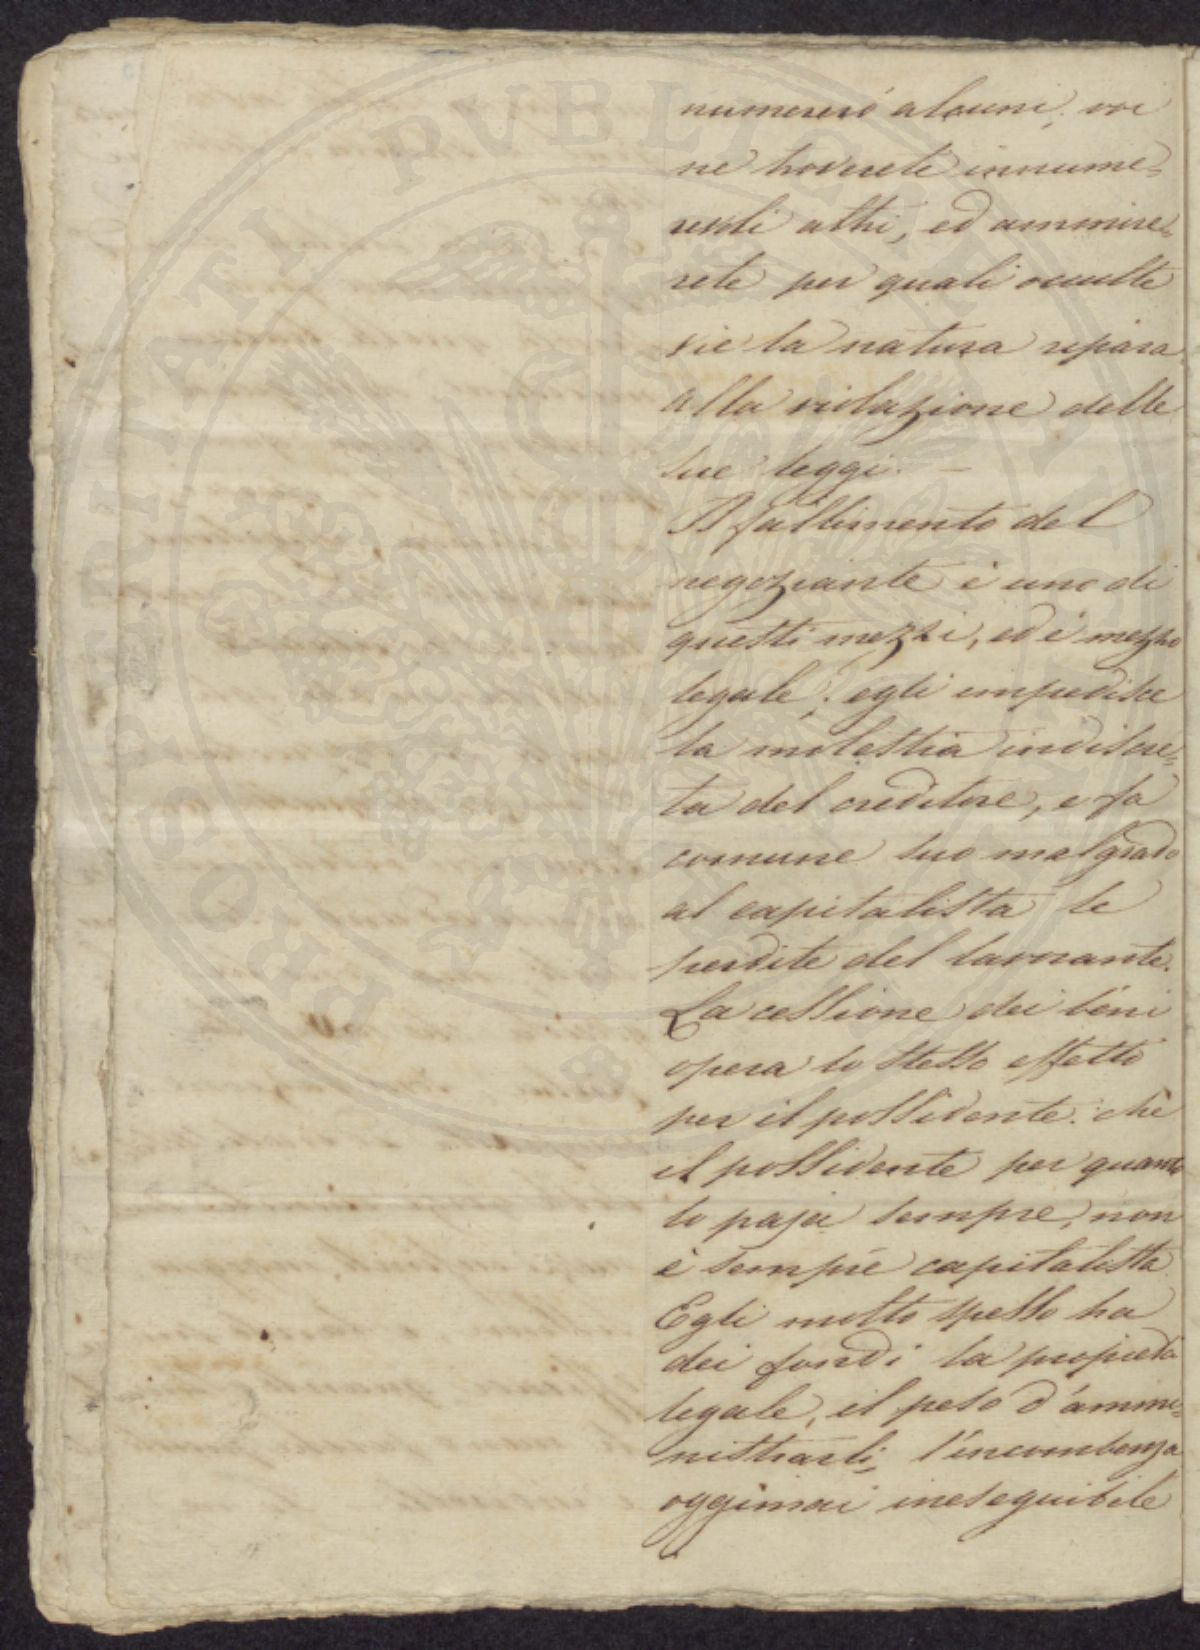 numererò alcuni; voi
ne troverete innume=
revoli altri, ed ammire=
rete per quali occulte
vie la natura ripara
alla violazione delle
sue leggi. —
Il fallimento del
negoziante è uno di
questi mezzi, ed è mezzo
legale; egli impedisce
la molestia indiscre=
ta del creditore, e fa
comune suo malgrado
al capitalista le
perdite del lavorante.
La cessione dei beni
opera lo stesso effetto
per il possidente: che
il possidente per quanto
lo paja sempre, non
è sempre capitalista
Egli molto spesso ha
dei fondi la proprietà
legale, il peso d'ammi=
nistrarli, l'incombenza
oggimai ineseguibile
PROSPERITATI PVBLICAE